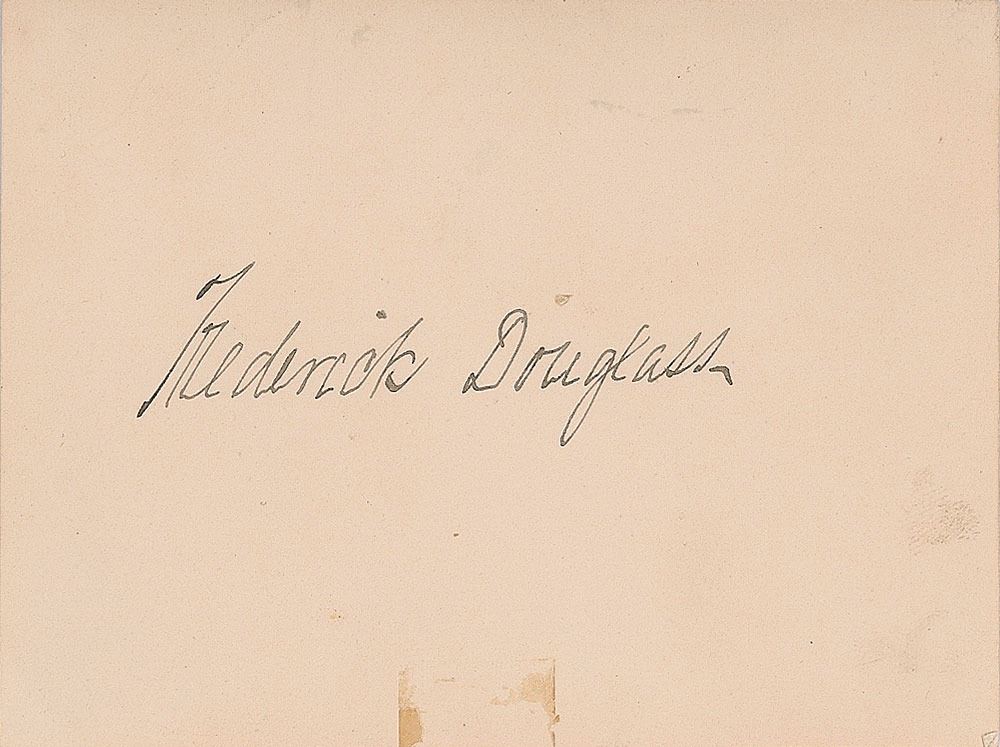 Frederick Douglass